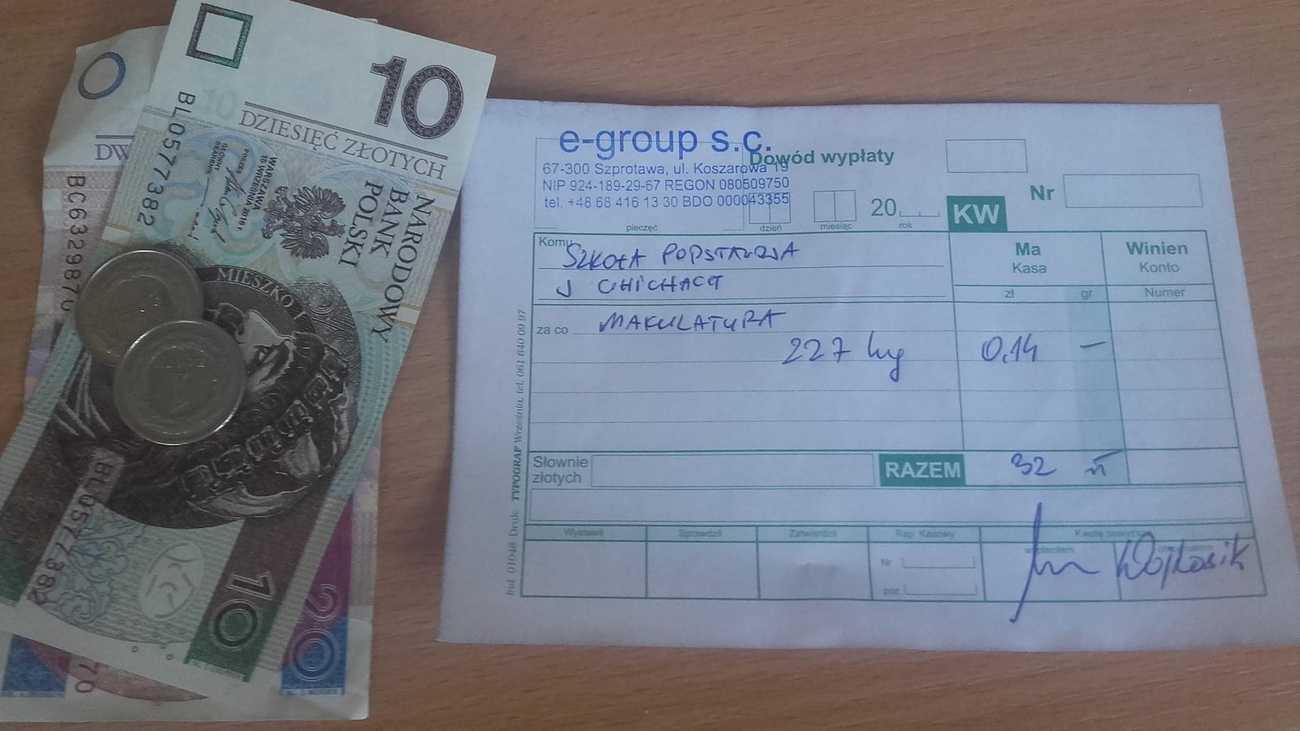 10
DZIESIĘĆ ZŁOTYCH
BL0577382
NARODOWY
BANK
POLSKI
MIESZKO I
BL0577382
10
DW
BC6329870
20
70
e-group s.c.
67-300 Szprotawa, ul. Koszarowa 19
NIP 924-189-29-67 REGON 080509750
tel. +48 68 416 13 30 BDO 000043355
Dowód wypłaty
pieczęć
dzień miesiąc 20 rok
KW
Nr
Komu SZKOŁA PODSTAWOWA
Ma
Kasa
Winien
Konto
zł gr
Numer
za co MAKULATURA
227 kg 0,14 —
Słownie
złotych
RAZEM 32 zł
Wystawił Sprawdził Zatwierdził Rap. Kasowy
Nr
poz.
Wojtasik
Druk: TYPOGRAF Września, tel. 061 640 09 97